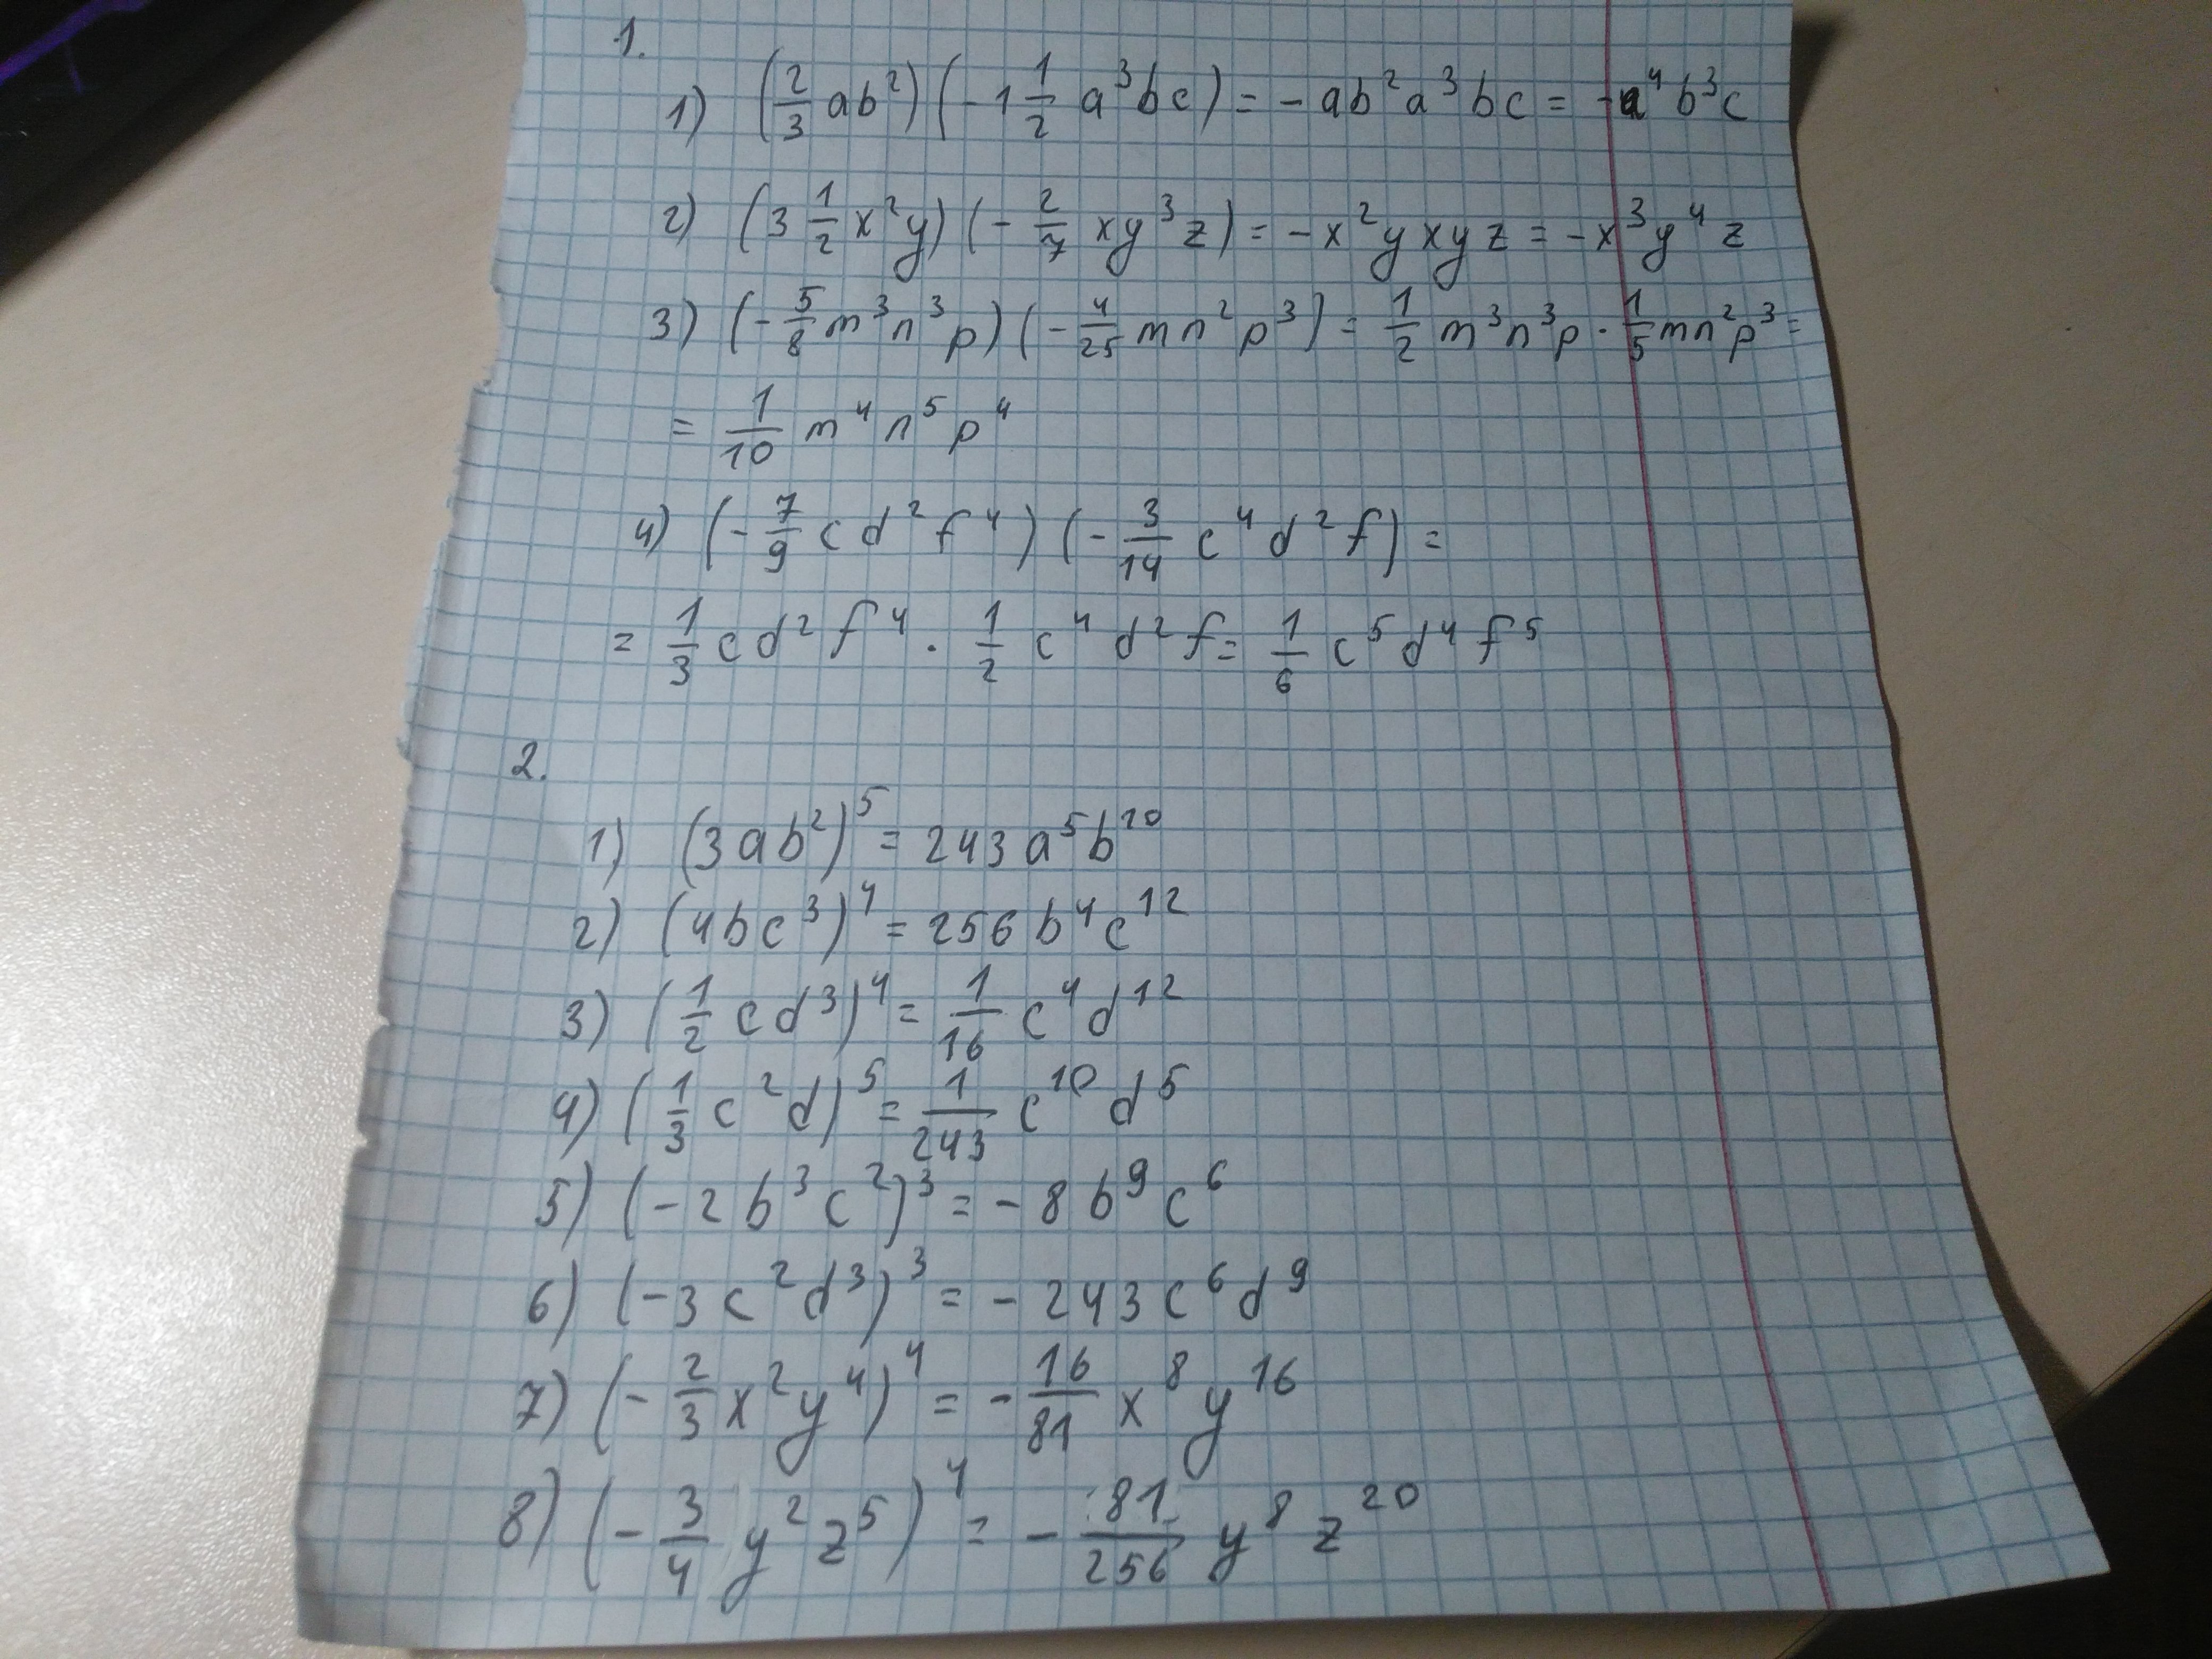 1.
1) (2/3 ab²)(-1 1/2 a³bc) = -ab²a³bc = -a⁴b³c
2) (3 1/2 x²y)(-2/7 xy³z) = -x²yxyz = -x³y⁴z
3) (-5/8 m³n³p)(-4/25 mn²p³) = 1/2 m³n³p · 1/5 mn²p³ =
= 1/10 m⁴n⁵p⁴
4) (-7/9 cd²f⁴)(-3/14 c⁴d²f) =
= 1/3 cd²f⁴ · 1/2 c⁴d²f = 1/6 c⁵d⁴f⁵
2.
1) (3ab²)⁵ = 243a⁵b¹⁰
2) (4bc³)⁴ = 256b⁴c¹²
3) (1/2 cd³)⁴ = 1/16 c⁴d¹²
4) (1/3 c²d)⁵ = 1/243 c¹⁰d⁵
5) (-2b³c²)³ = -8b⁹c⁶
6) (-3c²d³)³ = -243c⁶d⁹
7) (-2/3 x²y⁴)⁴ = -16/81 x⁸y¹⁶
8) (-3/4 y²z⁵)⁴ = -81/256 y⁸z²⁰